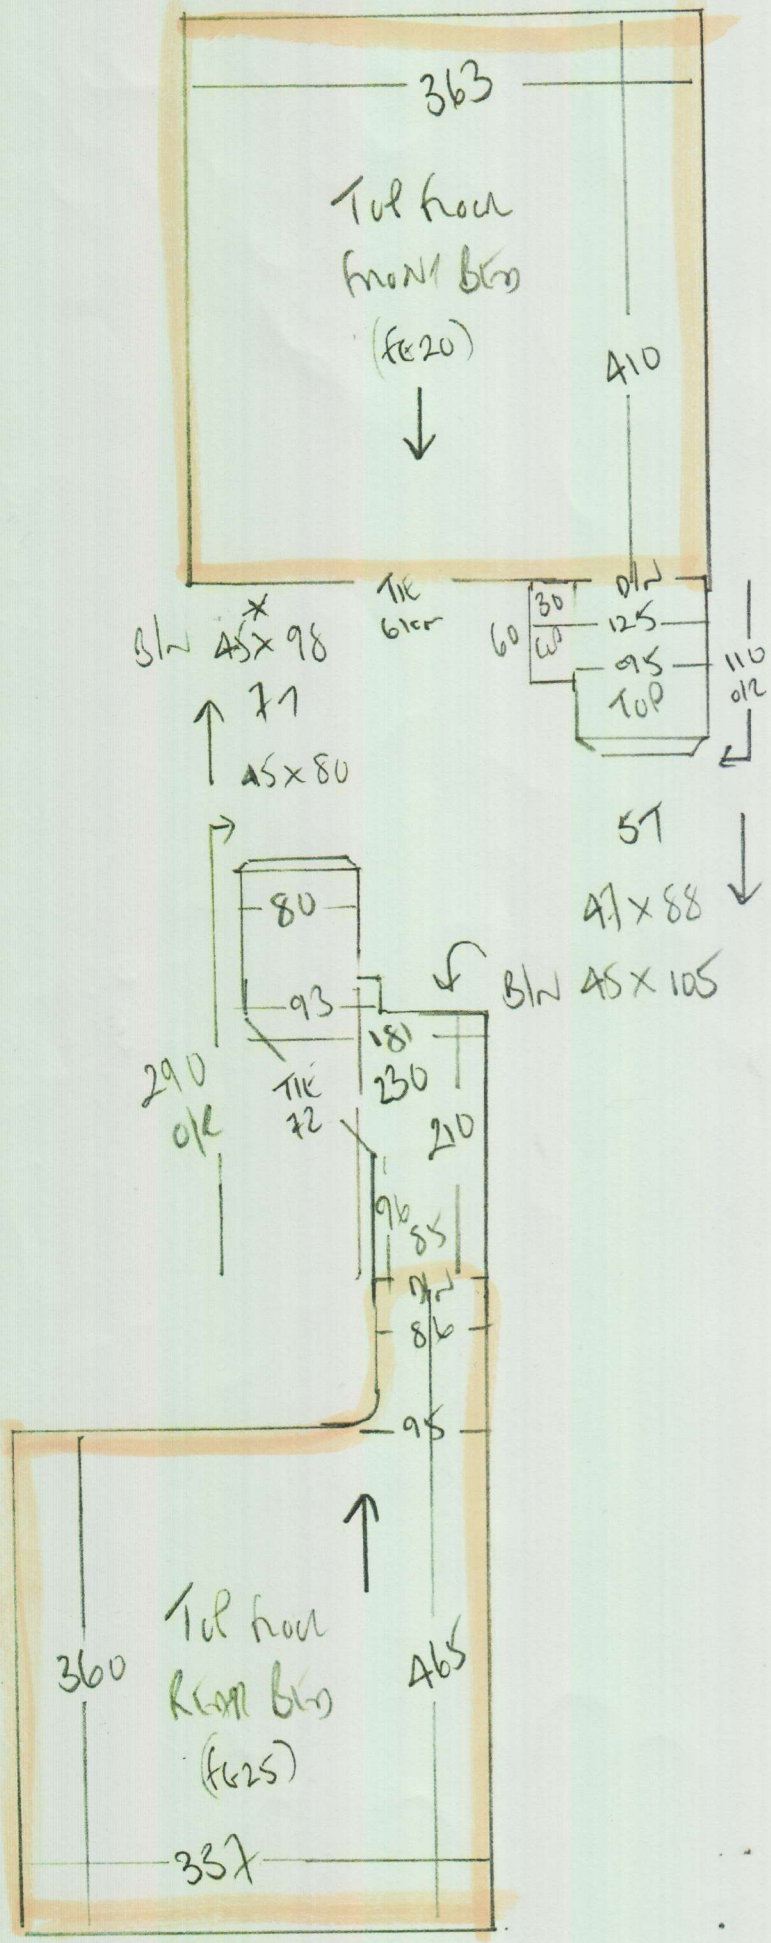 363
Top Floor
FRONT BED
(FE20)
410
TIE
61cm
D/N
30
125
60
95
TOP
110
O/R
B/N 45 X 98
7T
45 X 80
5T
47 X 88
B/N 45 X 105
80
93
181
230
290
O/R
TIE
72
210
96
85
D/N
86
95
Top Floor
REAR BED
(FE25)
360
465
337